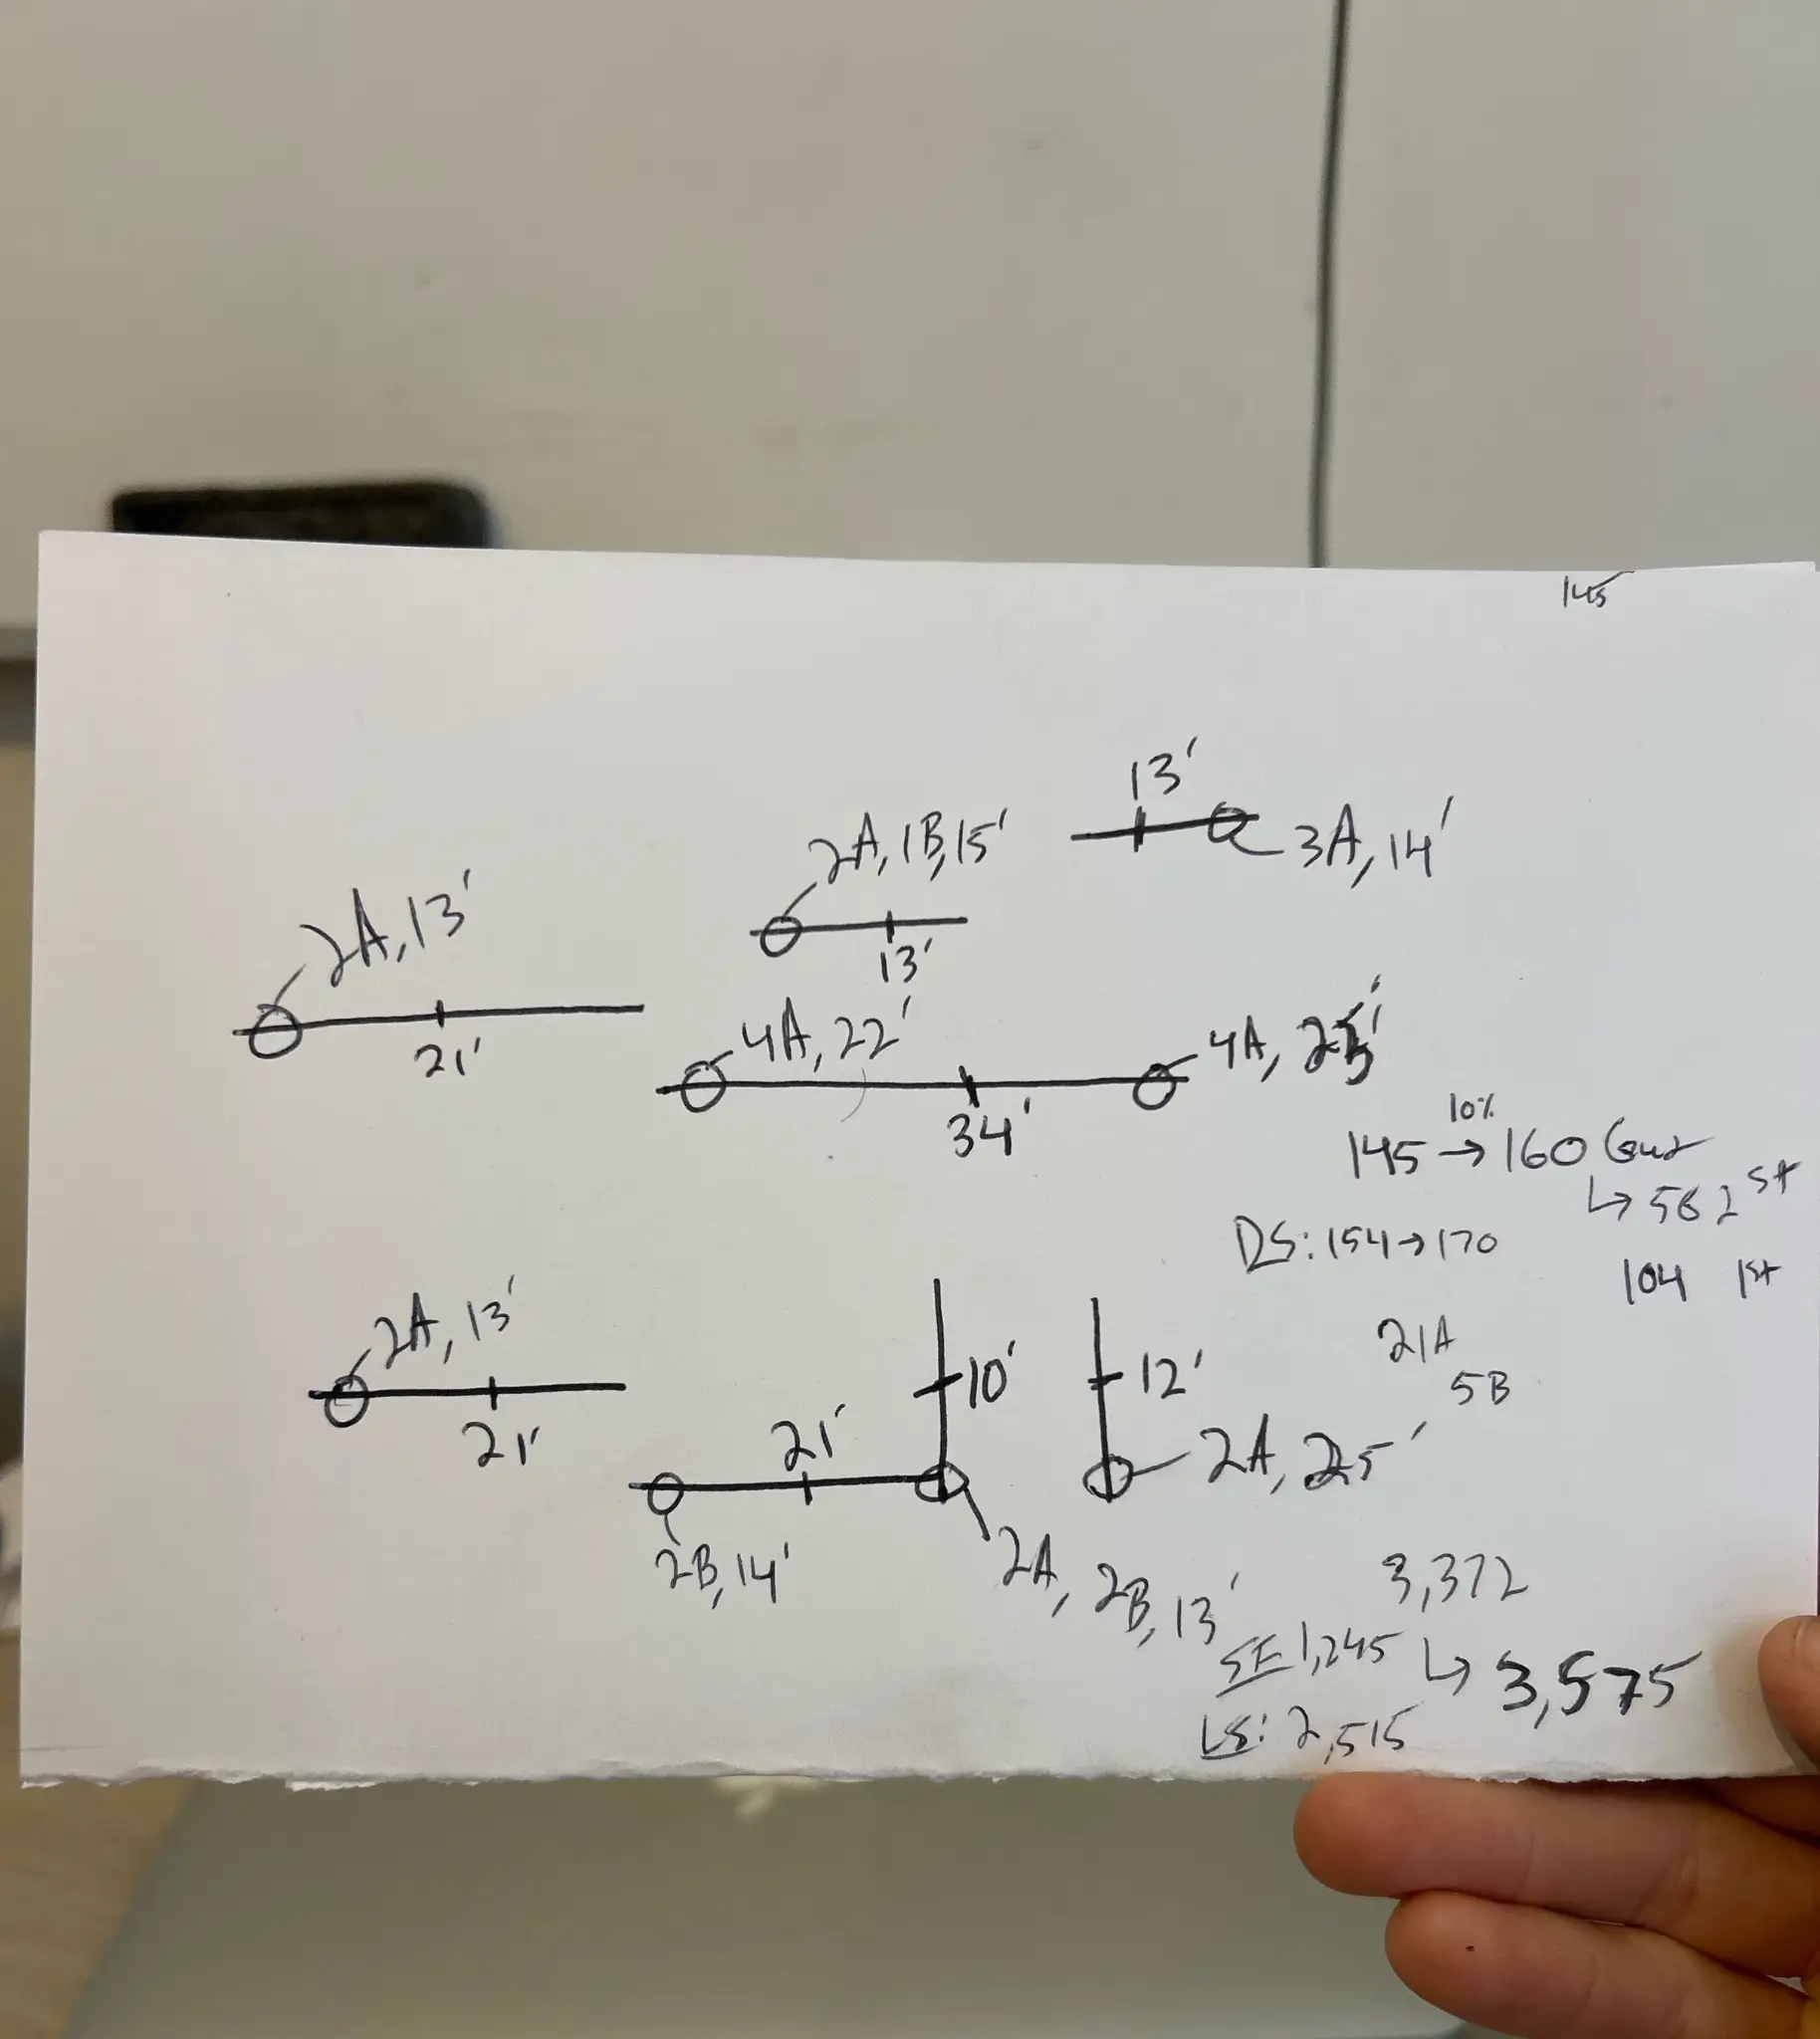 145
13'
3A, 14'
2A, 1B, 15'
13'
2A, 13'
21'
4A, 22'
34'
4A,
10%
145 → 160
↳ 562 st
DS: 154 → 170
104 1st
2A, 13'
21'
10'
12'
21A
5B
21'
2A, 25'
2B, 14'
2A, 2B, 13'
3,372
SE 1,245
↳ 3,575
LS: 2,515